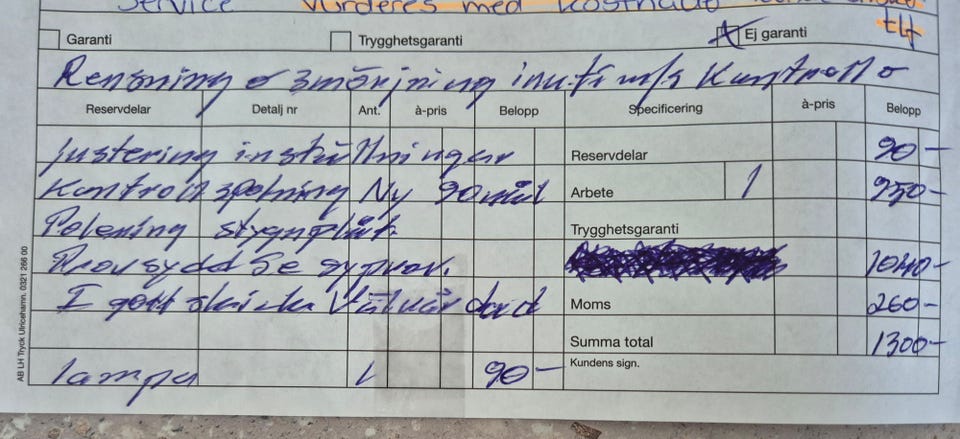 Service Vurderes med kostnad
tlf
Garanti Trygghetsgaranti Ej garanti
Rensning o smörjning inuti Kontroll o
Reservdelar Detalj nr Ant. à-pris Belopp Specificering à-pris Belopp
justering inställningar Reservdelar 90-
Kontroll spolning Ny 90 Arbete 1 950-
Polering stygnplåt Trygghetsgaranti
Provsydd Se syprov. 1040-
I gott skick Välvårdad Moms 260-
Summa total 1300-
lampa 1 90- Kundens sign.
AB LH Tryck Ulricehamn. 0321 266 00